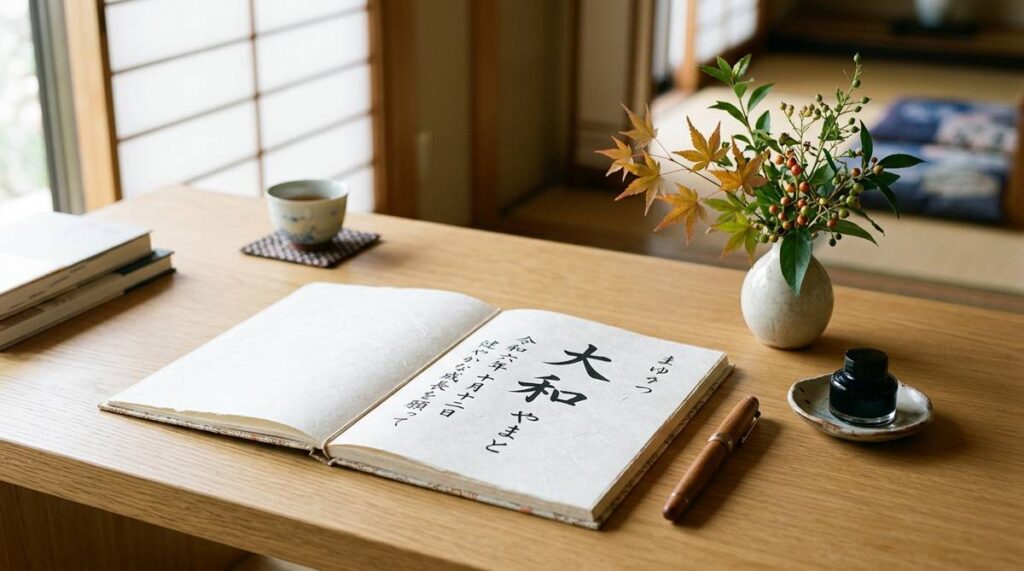 大和 やまと
令和六年 十月十二日
健やかな成長を願って